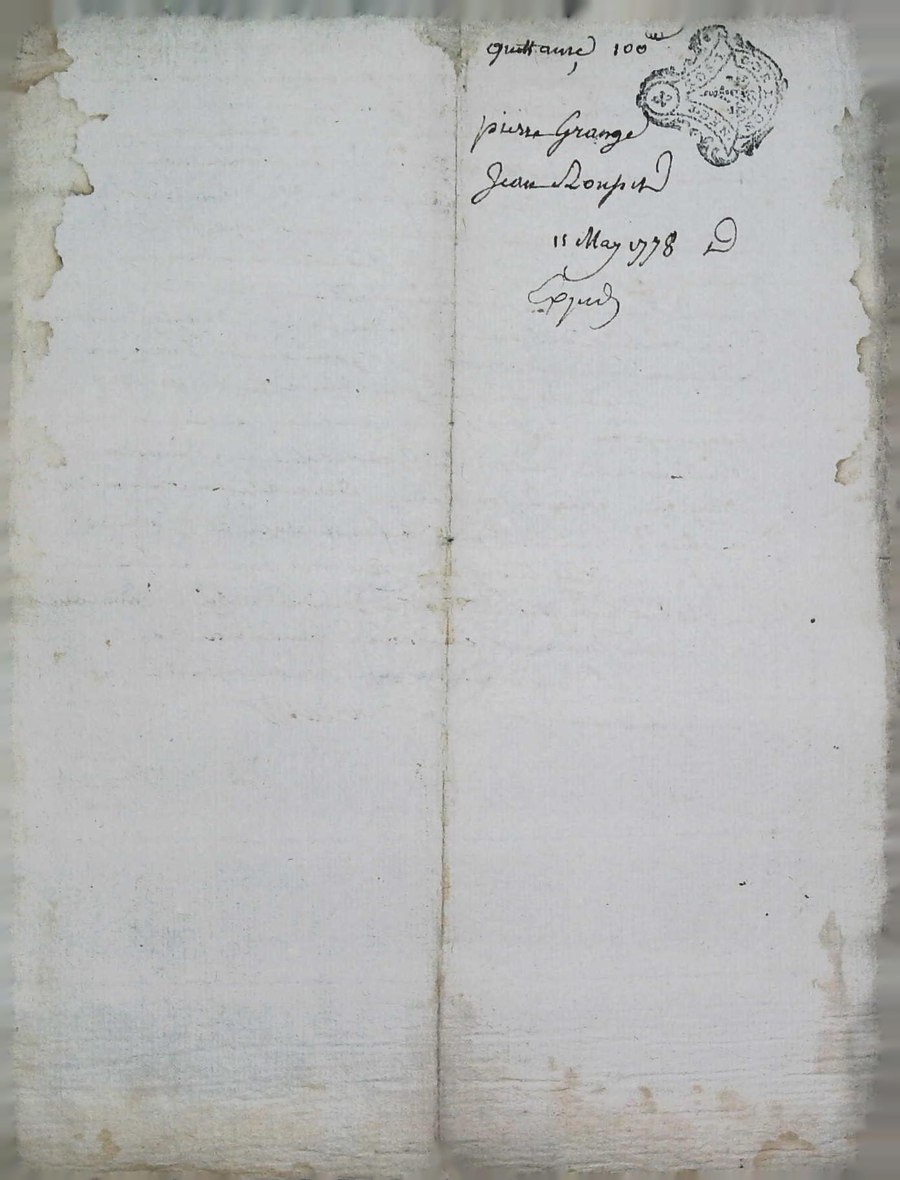 quittance 100
pierre Grange
Jean Roupit
11 May 1778
Exped